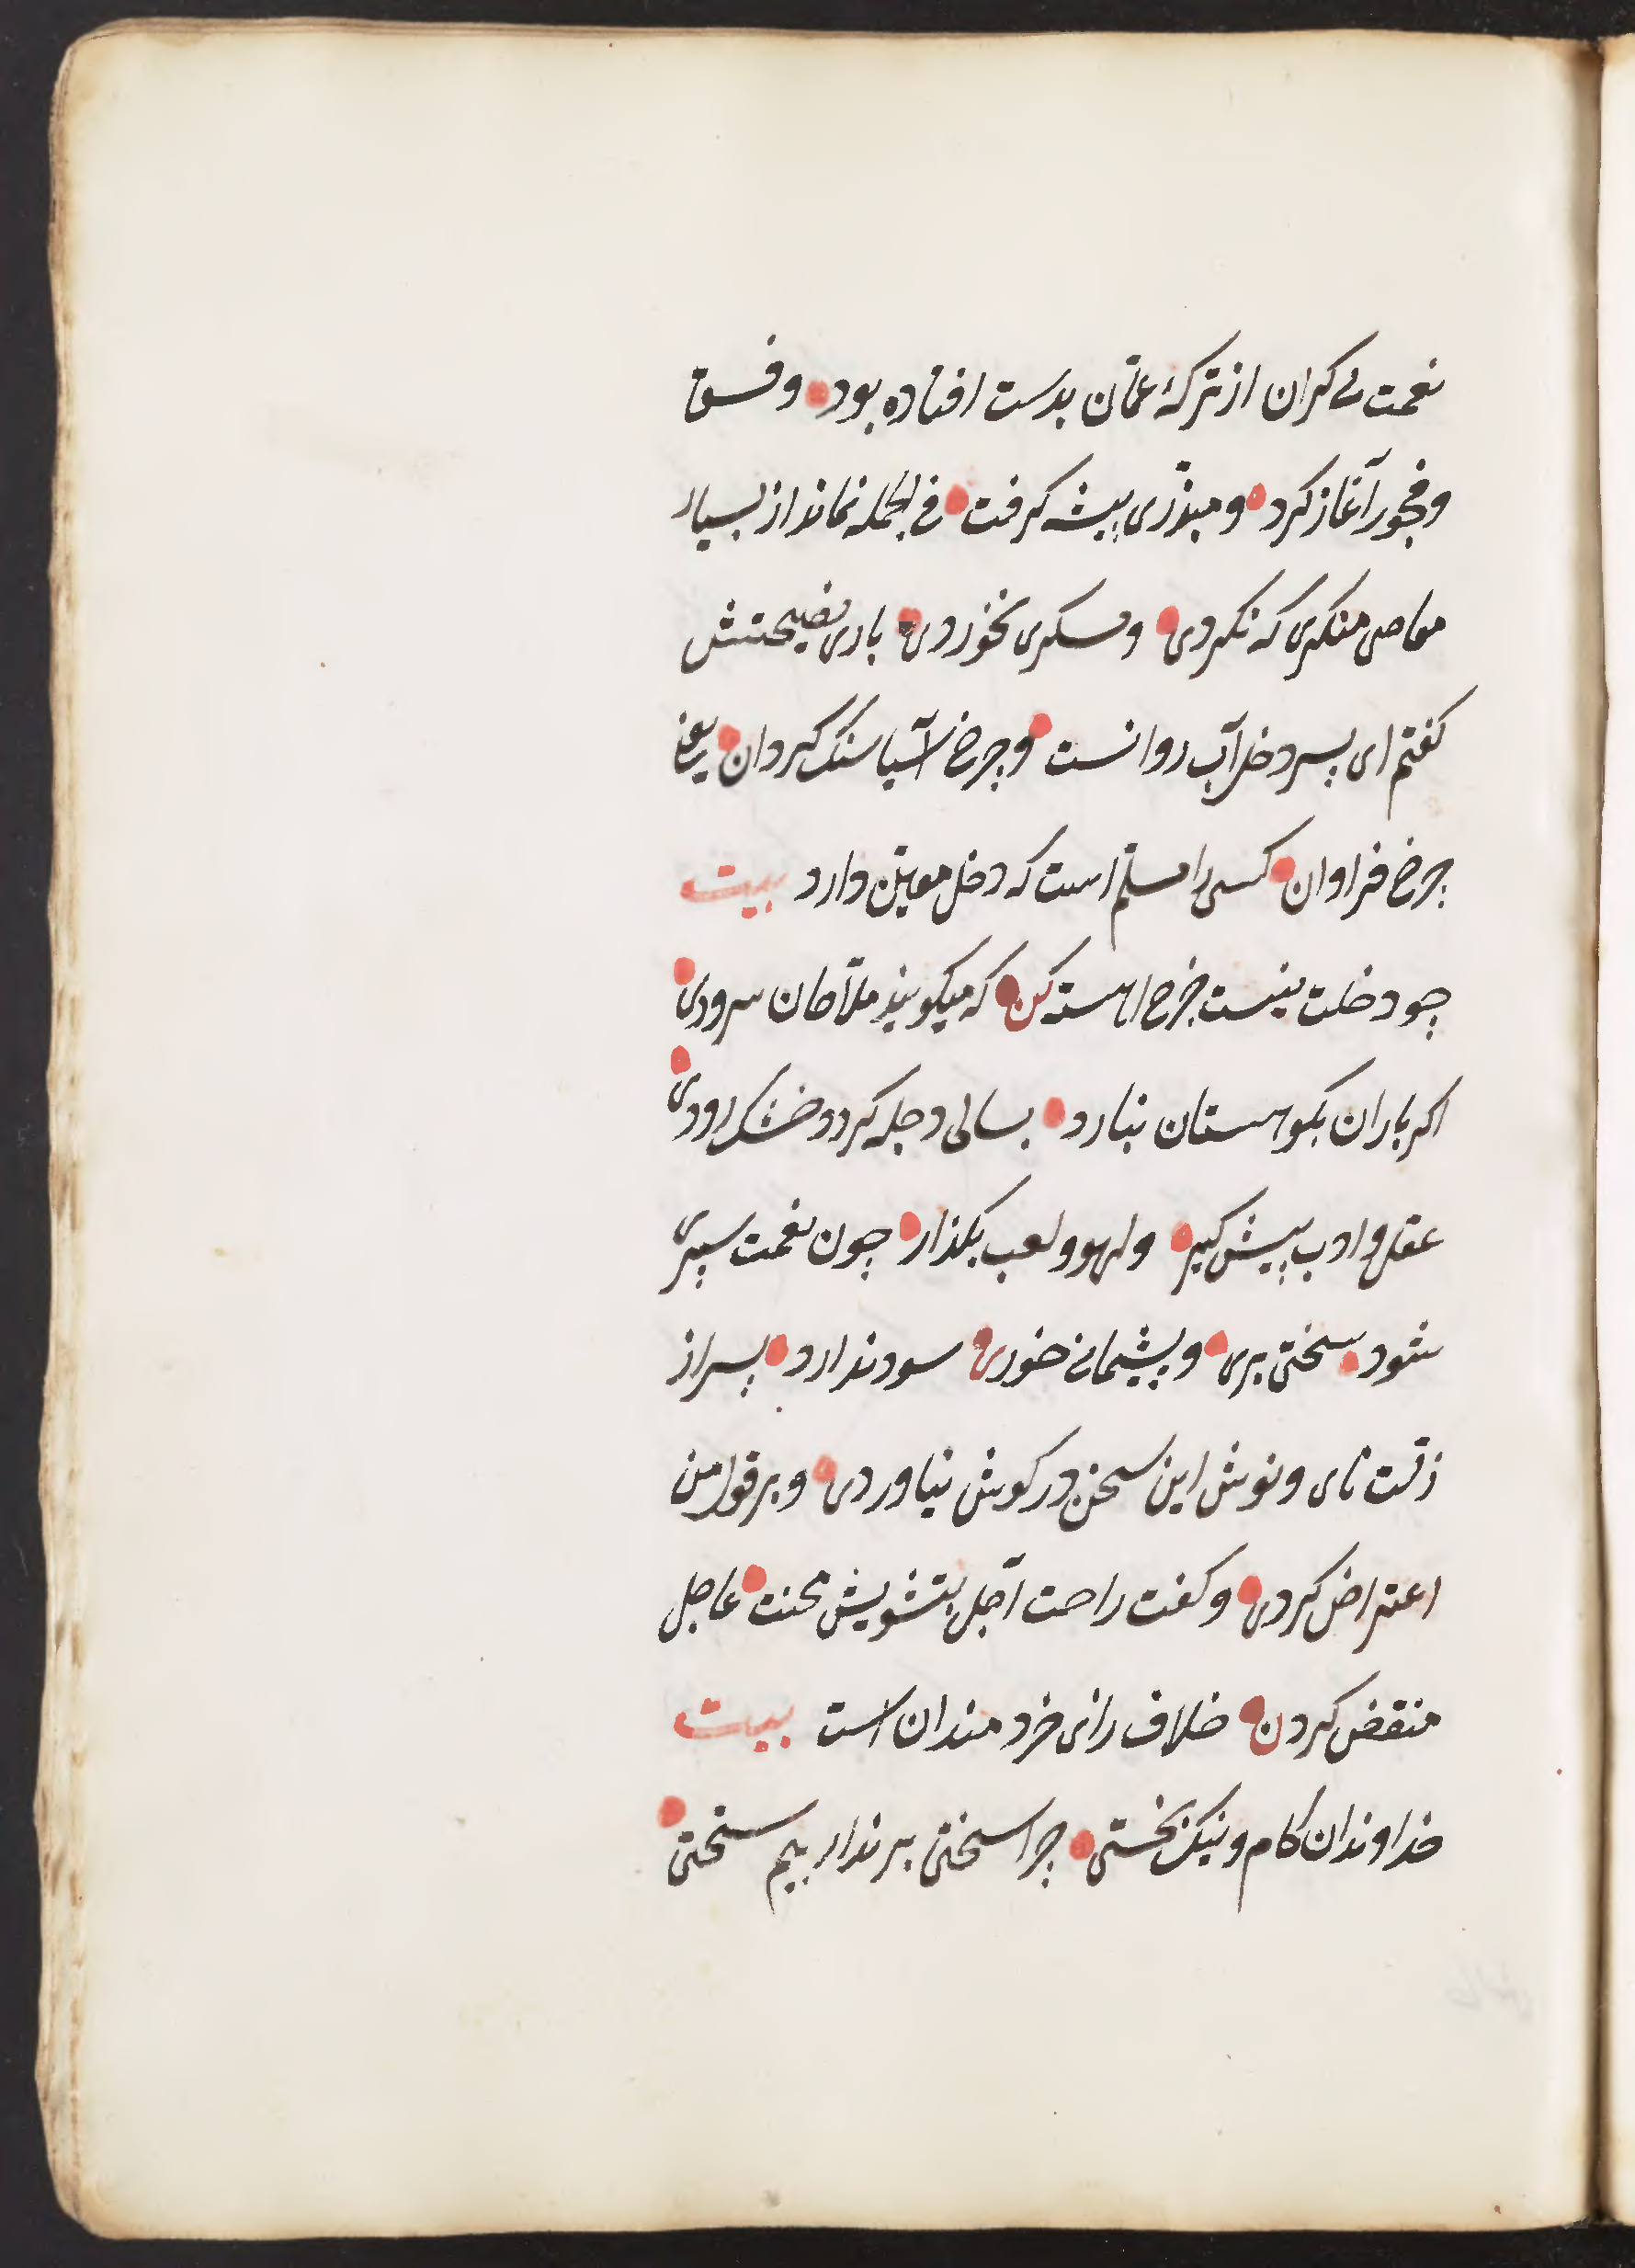 نعمت بی کران از ترکهٔ عمّان بدست افتاده بود وفسق
وفجور آغاز کرد ومبذّری پیشه کرفت فی الجمله نماند از بسیار
معاصی منکری که نکردی ومسکری نخوردی باری نصیحتش
کفتم ای پسر دخل آب روانست وچرخ آسیا سنک کردان یعنی
چرخ فراوان کسی را مسلّم است که دخل معیّن دارد بیت
چو دخلت نیست خرج اهسته کن که میکویند ملّاحان سرودی
اکر باران بکوهستان نبارد بسالی دجله کردد خشک رودی
عقل وادب پیش کیر ولهو ولعب بکذار چون نعمت سپری
شود سختی بری وپشیمانی خوری سود ندارد پسر از
لذّت نای ونوش این سخن در کوش نیاوردی وبر قول من
اعتراض کردی وکفت راحت آجل بتشویش محنت عاجل
منقض کردن خلاف رای خردمندان است بیت
خداوندان کام ونیکبختی چرا سختی برند از بیم سختی